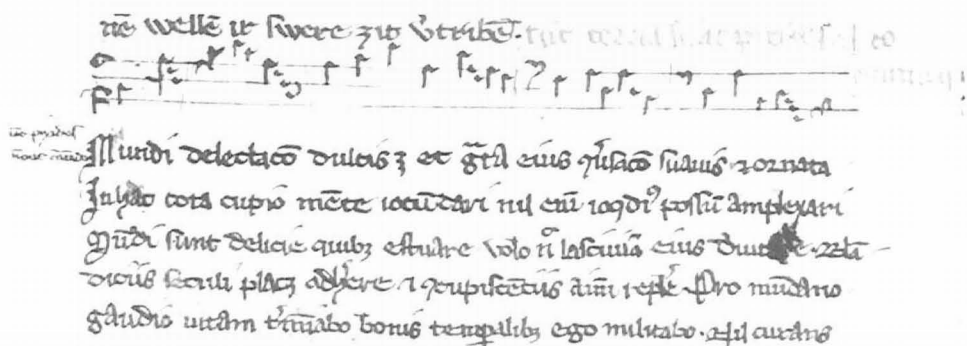 nē wellē ir swere zit v̾tribē.
Mundi delectacō dulcis ꝫ et gͣta eius ꝯ̾sacō suauis ⁊ ornata
In hac tota cupio mēte iocūdari nil eni ioꝯdiꝰ possū amplexari
Mūdi sunt delicie quibꝫ estuare volo nͦ lasciuiā eius
diciis seculi placꝫ adhere ⁊ ꝯcupiscētiis aīm replē Pro mūdano
gaudio uitam t̾minabo bonis temꝑalibꝫ ego militabo. Nil curans